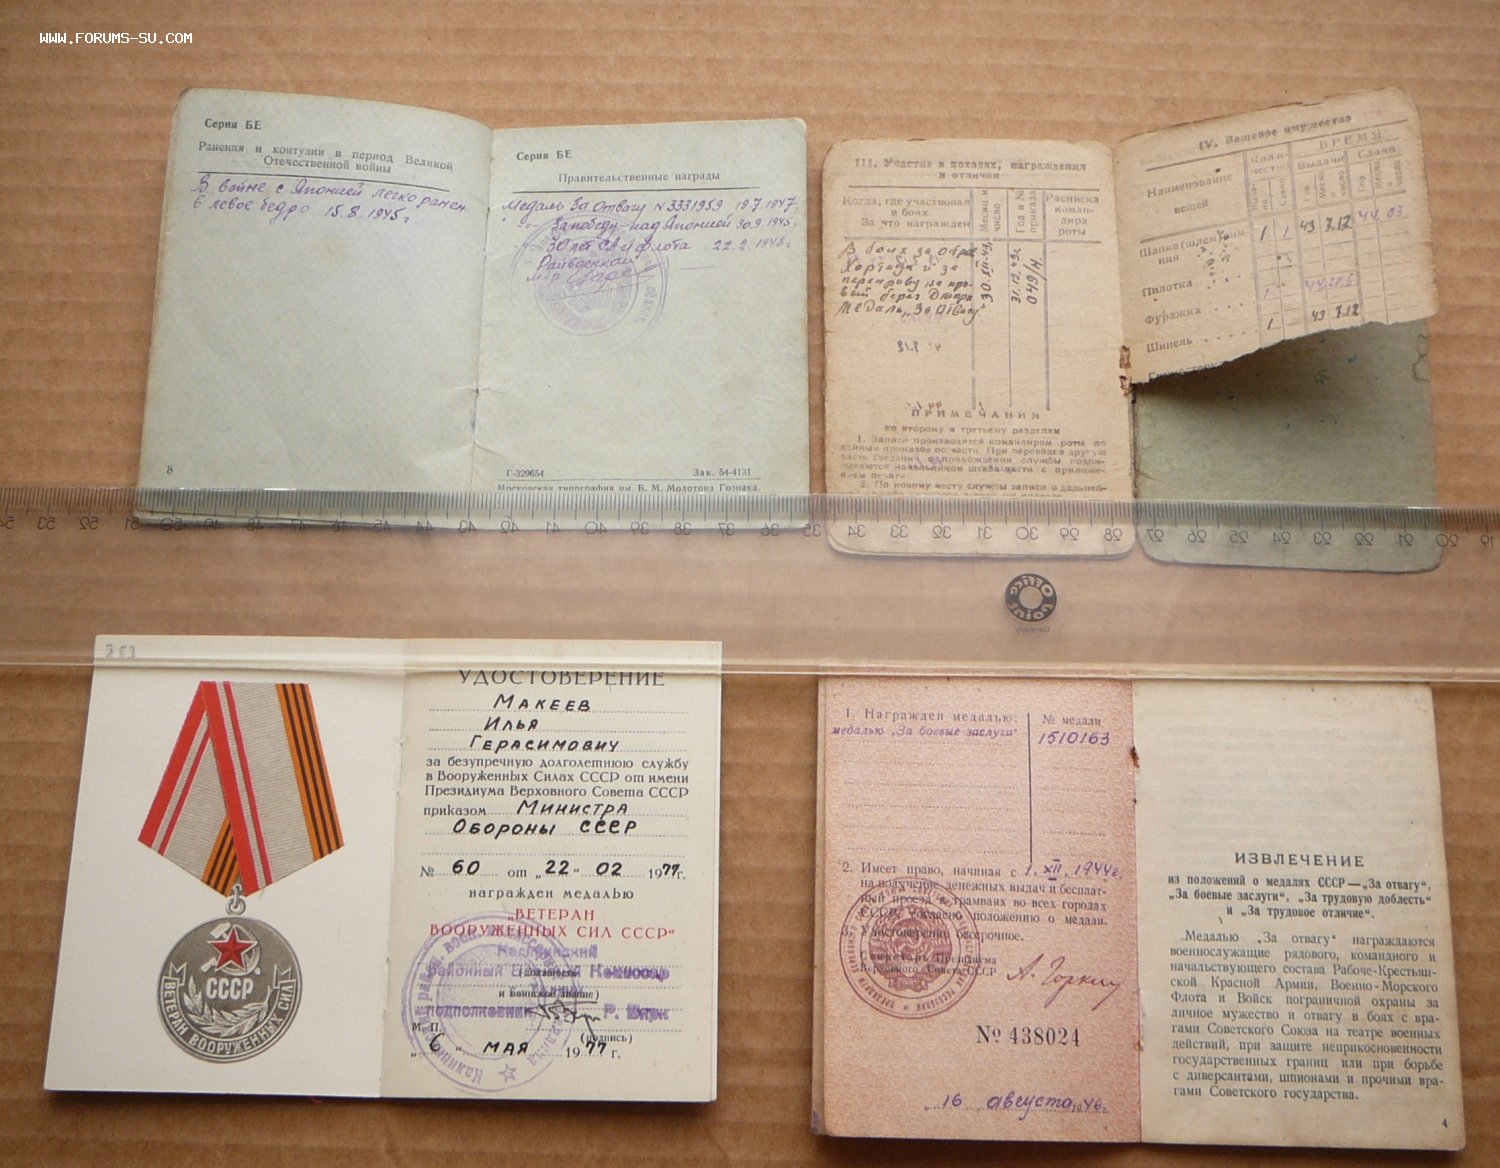 WWW.FORUMS-SU.COM
Серия БЕ
Ранения и контузии в период Великой
Отечественной войны
В войне с Японией легко ранен
в левое бедро 15.8.1945г
8
Серия БЕ
Правительственные награды
Медаль За Отвагу N 3331959 19.7.1947г
За победу над Японией 30.9.1945г
30 лет СА и флота 22.2.1948г
Райвоенком
Г-329654 Зак. 54-4131
Московская типография им. В. М. Молотова Гознака.
III. Участие в походах, награждения
и отличия
Когда, где участвовал
в боях.
За что награжден
Месяц и
число
Год и №
приказа
Расписка
коман-
дира
роты
В боях за
и за
переправу на пра-
вый берег Днепра
Медаль "За Отвагу"
30.XII-43
31.12.43г
049/н.
ПРИМЕЧАНИЯ
ко второму и третьему разделам
1. Записи производятся командиром роты по
2. По новому месту службы записи о дальней-
IV. Вещевое имущество
Наименование
вещей
Коли-
чество
ВРЕМЯ
Выдачи
Сдачи
Год
Месяц
и
число
Год
Месяц
и
число
Шапка (шлем) зим-
няя
1 1 43 7.12 44 03
Пилотка
1 44
Фуражка
1 43 7.12
Шинель
54 53 52 51 50 49 48 47 46 45 44 43 42 41 40 39 38 37 36 35 34 33 32 31 30 29 28 27 26 25 24 23 22 21 20 19
Office
Point
Germany
УДОСТОВЕРЕНИЕ
Макеев
Илья
Герасимович
за безупречную долголетнюю службу
в Вооруженных Силах СССР от имени
Президиума Верховного Совета СССР
приказом Министра
Обороны СССР
№ 60 от „22" 02 1977г.
награжден медалью
„ВЕТЕРАН
ВООРУЖЕННЫХ СИЛ СССР"
Районный Военный Комиссар
(должность
и воинское звание)
подполковник
(подпись)
М. П.
„6" мая 1977 г.
СССР
ВЕТЕРАН ВООРУЖЕННЫХ СИЛ
1. Награжден медалью:
№ медали
медалью „За боевые заслуги"
1510163
2. Имеет право, начиная с 1.XII.1944г.
на получение денежных выдач и бесплат-
ный проезд в трамваях во всех городах
СССР, согласно положению о медали.
3. Удостоверение бессрочное.
Секретарь Президиума
Верховного Совета СССР
А. Горкин
№ 438024
„16" августа 1946г.
ИЗВЛЕЧЕНИЕ
из положений о медалях СССР—„За отвагу",
„За боевые заслуги", „За трудовую доблесть"
и „За трудовое отличие".
Медалью „За отвагу" награждаются
военнослужащие рядового, командного и
начальствующего состава Рабоче-Крестьян-
ской Красной Армии, Военно-Морского
Флота и Войск пограничной охраны за
личное мужество и отвагу в боях с вра-
гами Советского Союза на театре военных
действий, при защите неприкосновенности
государственных границ или при борьбе
с диверсантами, шпионами и прочими вра-
гами Советского государства.
4